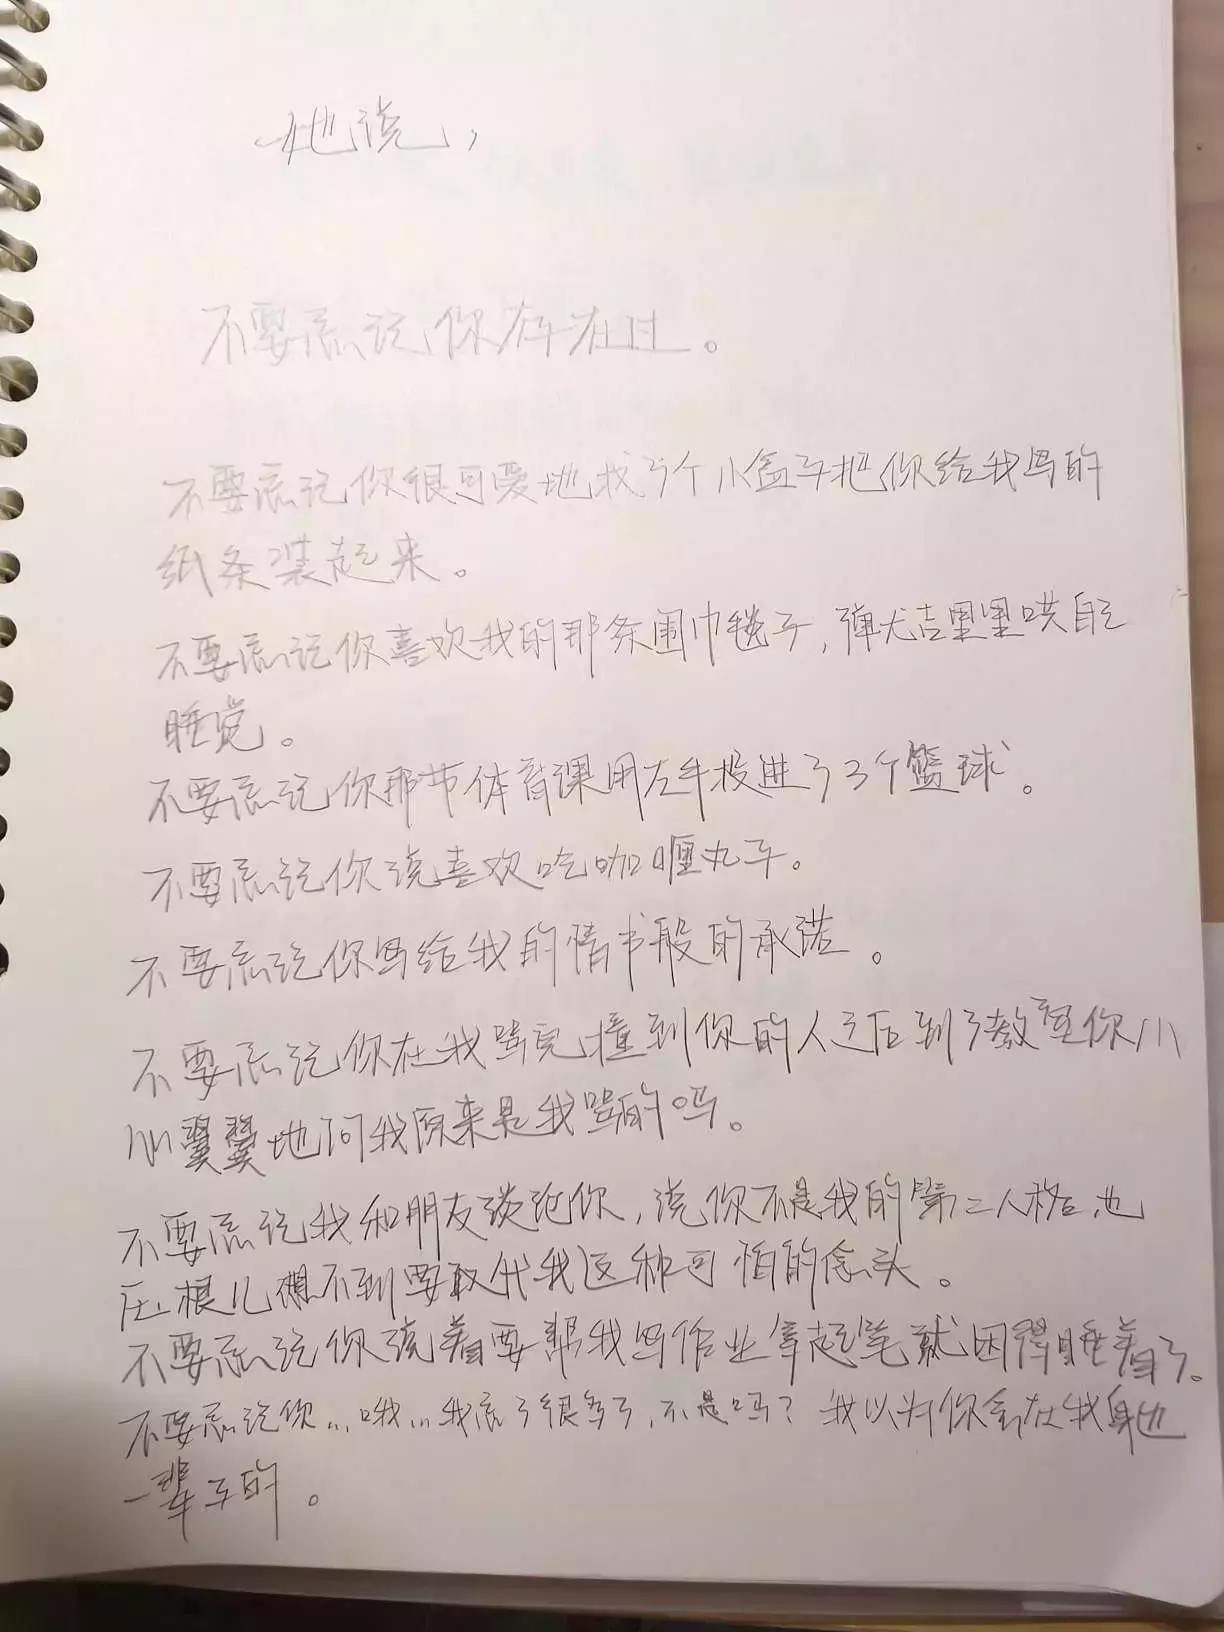 她说，
不要忘记你存在过。
不要忘记你很可爱地找了个小盒子把你给我写的
纸条装起来。
不要忘记你喜欢我的那条围巾毯子，弹尤吉里里哄自己
睡觉。
不要忘记你那节体育课用左手投进了3个篮球。
不要忘记你说喜欢吃咖喱丸子。
不要忘记你写给我的情书般的承诺。
不要忘记你在我骂完撞到你的人之后到了教室你小
心翼翼地问我原来是我骂的吗。
不要忘记我和朋友谈论你，说你不是我的第二人格，也
压根儿想不到要取代我这种可怕的念头。
不要忘记你说着要帮我写作业拿起笔就困得睡着了。
不要忘记你…哦…我忘了很多了，不是吗？我以为你会在我身边
一辈子的。